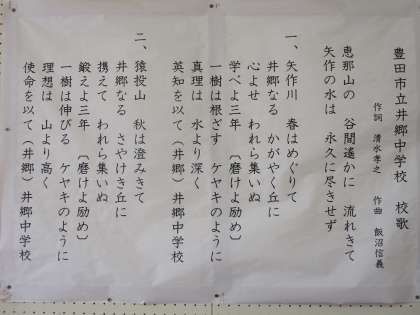 豊田市立井郷中学校 校歌
作詞 清水孝之 作曲 飯沼信義
恵那山の 谷間遙かに 流れきて
矢作の水は 永久に尽きせず
一、矢作川 春はめぐりて
井郷なる かがやく丘に
心よせ われら集いぬ
学べよ三年 〔磨けよ励め〕
一樹は根ざす ケヤキのように
真理は 水より深く
英知を以て(井郷)井郷中学校
二、猿投山 秋は澄みきて
井郷なる さやけき丘に
携えて われら集いぬ
鍛えよ三年 〔磨けよ励め〕
一樹は伸びる ケヤキのように
理想は 山より高く
使命を以て(井郷)井郷中学校